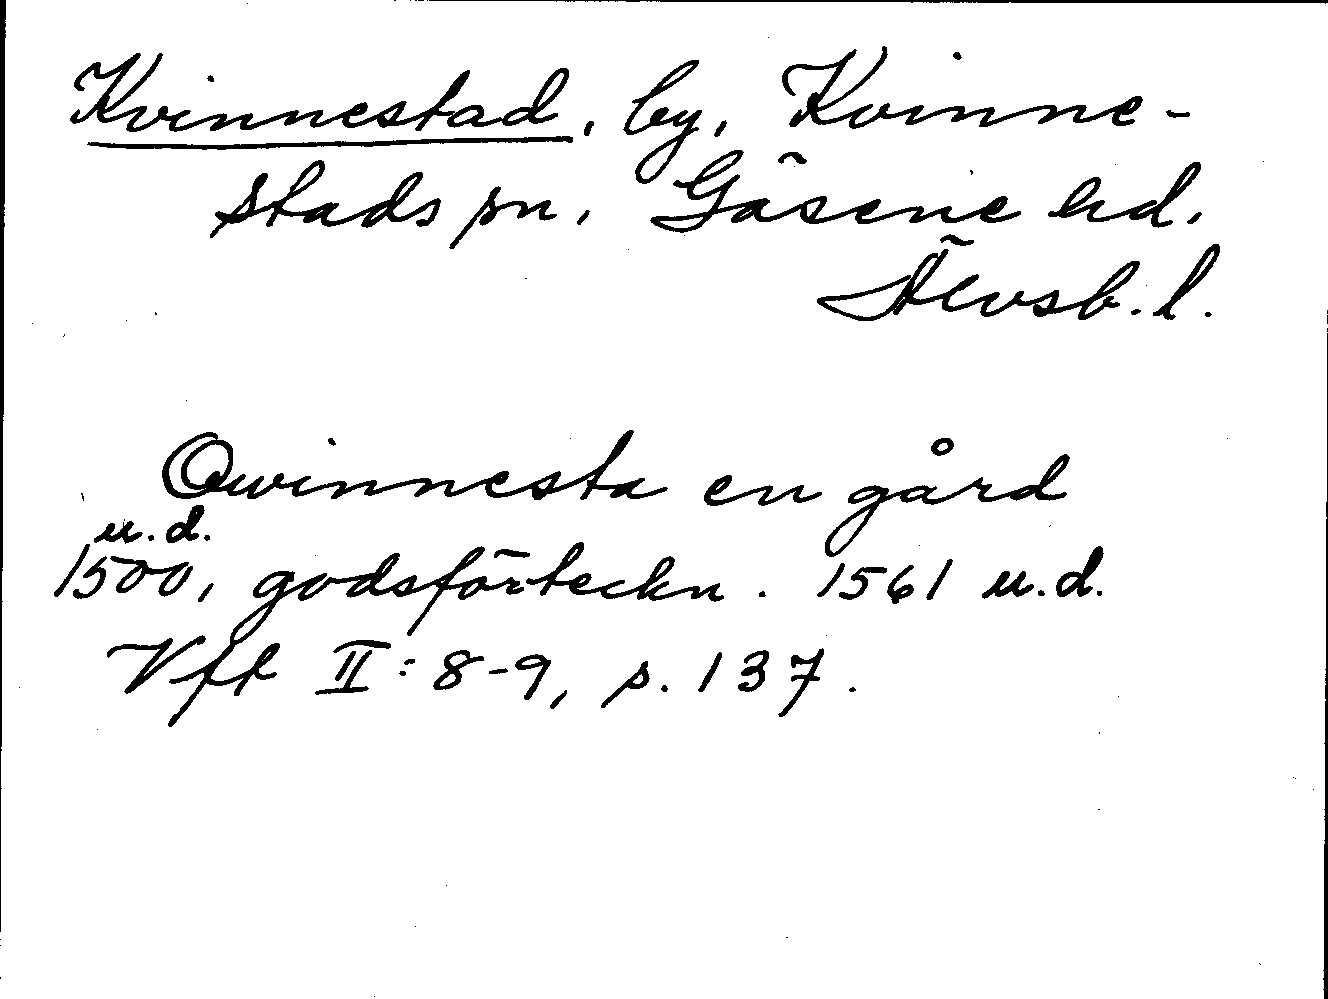 Kvinnestad, by, Kvinne-
stads sn, Gäsene hd.
Älvsb. l.
Qwinnesta en gård
u.d.
1500, godsförteckn. 1561 u.d.
Vft II: 8-9, s. 137.